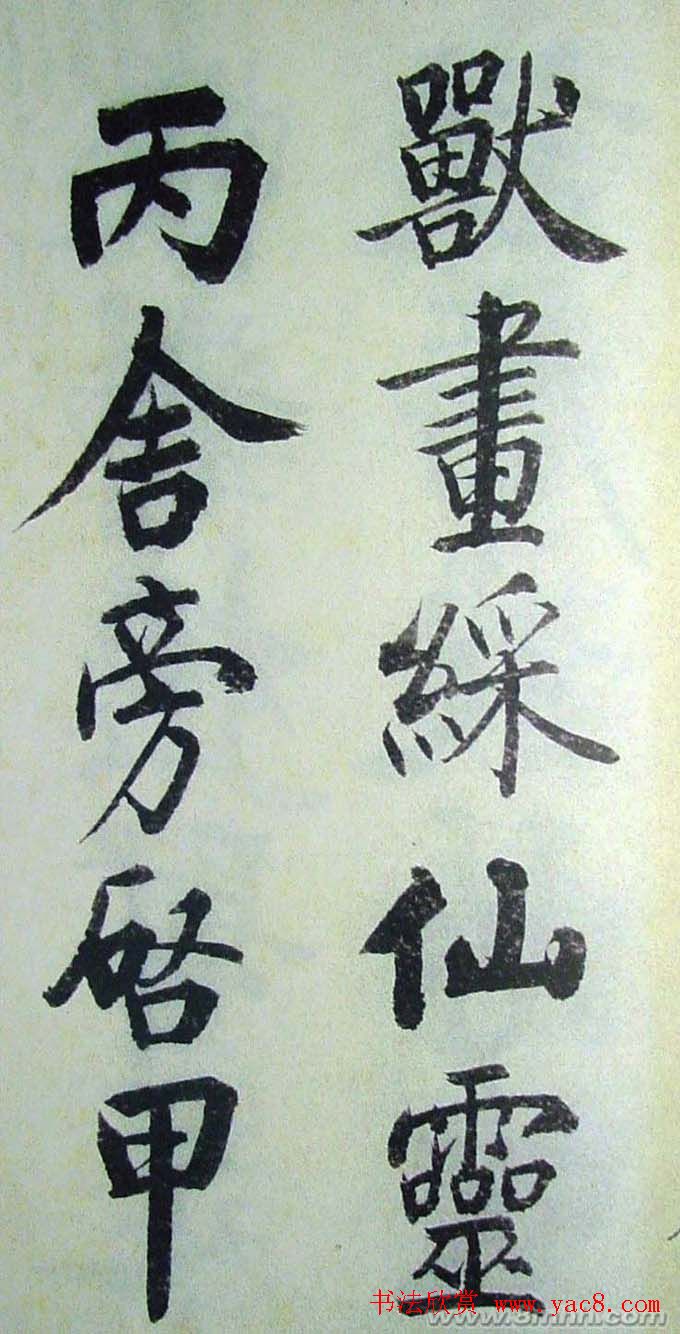 獸畫綵仙靈
丙舍旁啓甲
书法欣赏 www.yac8.com